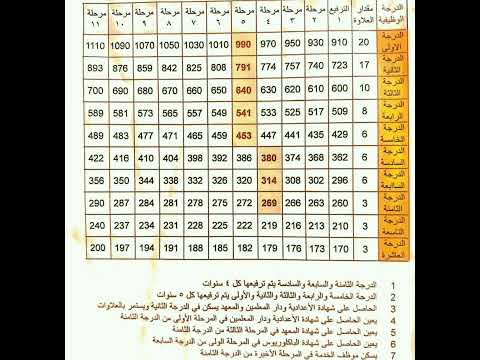 الدرجة الوظيفية مقدار العلاوة الترفيع ١ مرحلة ٢ مرحلة ٣ مرحلة ٤ مرحلة ٥ مرحلة ٦ مرحلة ٧ مرحلة ٨ مرحلة ٩ مرحلة ١٠ مرحلة ١١
الدرجة الاولى 20 910 930 950 970 990 1010 1030 1050 1070 1090 1110
الدرجة الثانية 17 723 740 757 774 791 808 825 842 859 876 893
الدرجة الثالثة 10 600 610 620 630 640 650 660 670 680 690 700
الدرجة الرابعة 8 509 517 525 533 541 549 557 565 573 581 589
الدرجة الخامسة 6 429 435 441 447 453 459 465 471 477 483 489
الدرجة السادسة 6 362 368 374 380 386 392 398 404 410 416 422
الدرجة السابعة 6 296 302 308 314 320 326 332 338 344 350 356
الدرجة الثامنة 3 260 263 266 269 272 275 278 281 284 287 290
الدرجة التاسعة 3 210 213 216 219 222 225 228 231 234 237 240
الدرجة العاشرة 3 170 173 176 179 182 185 188 191 194 197 200
1 الدرجة الثامنة والسابعة والسادسة يتم ترفيعها كل ٤ سنوات
2 الدرجة الخامسة والرابعة والثالثة والثانية والأولى يتم ترفيعها كل ٥ سنوات
3 الحاصل على شهادة الأعدادية ودار المعلمين والمعهد يسكن في الدرجة الثانية ويستمر بالعلاوات
4 يعين الحاصل على شهادة الأعدادية ودار المعلمين في المرحلة الأولى من الدرجة الثامنة
5 يعين الحاصل على شهادة المعهد في المرحلة الثالثة من الدرجة الثامنة
6 يعين الحاصل على شهادة الباكالوريوس في المرحلة الولى من الدرجة السابعة
7 يسكن موظف الخدمة في المرحلة الأخيرة من الدرجة الثامنة